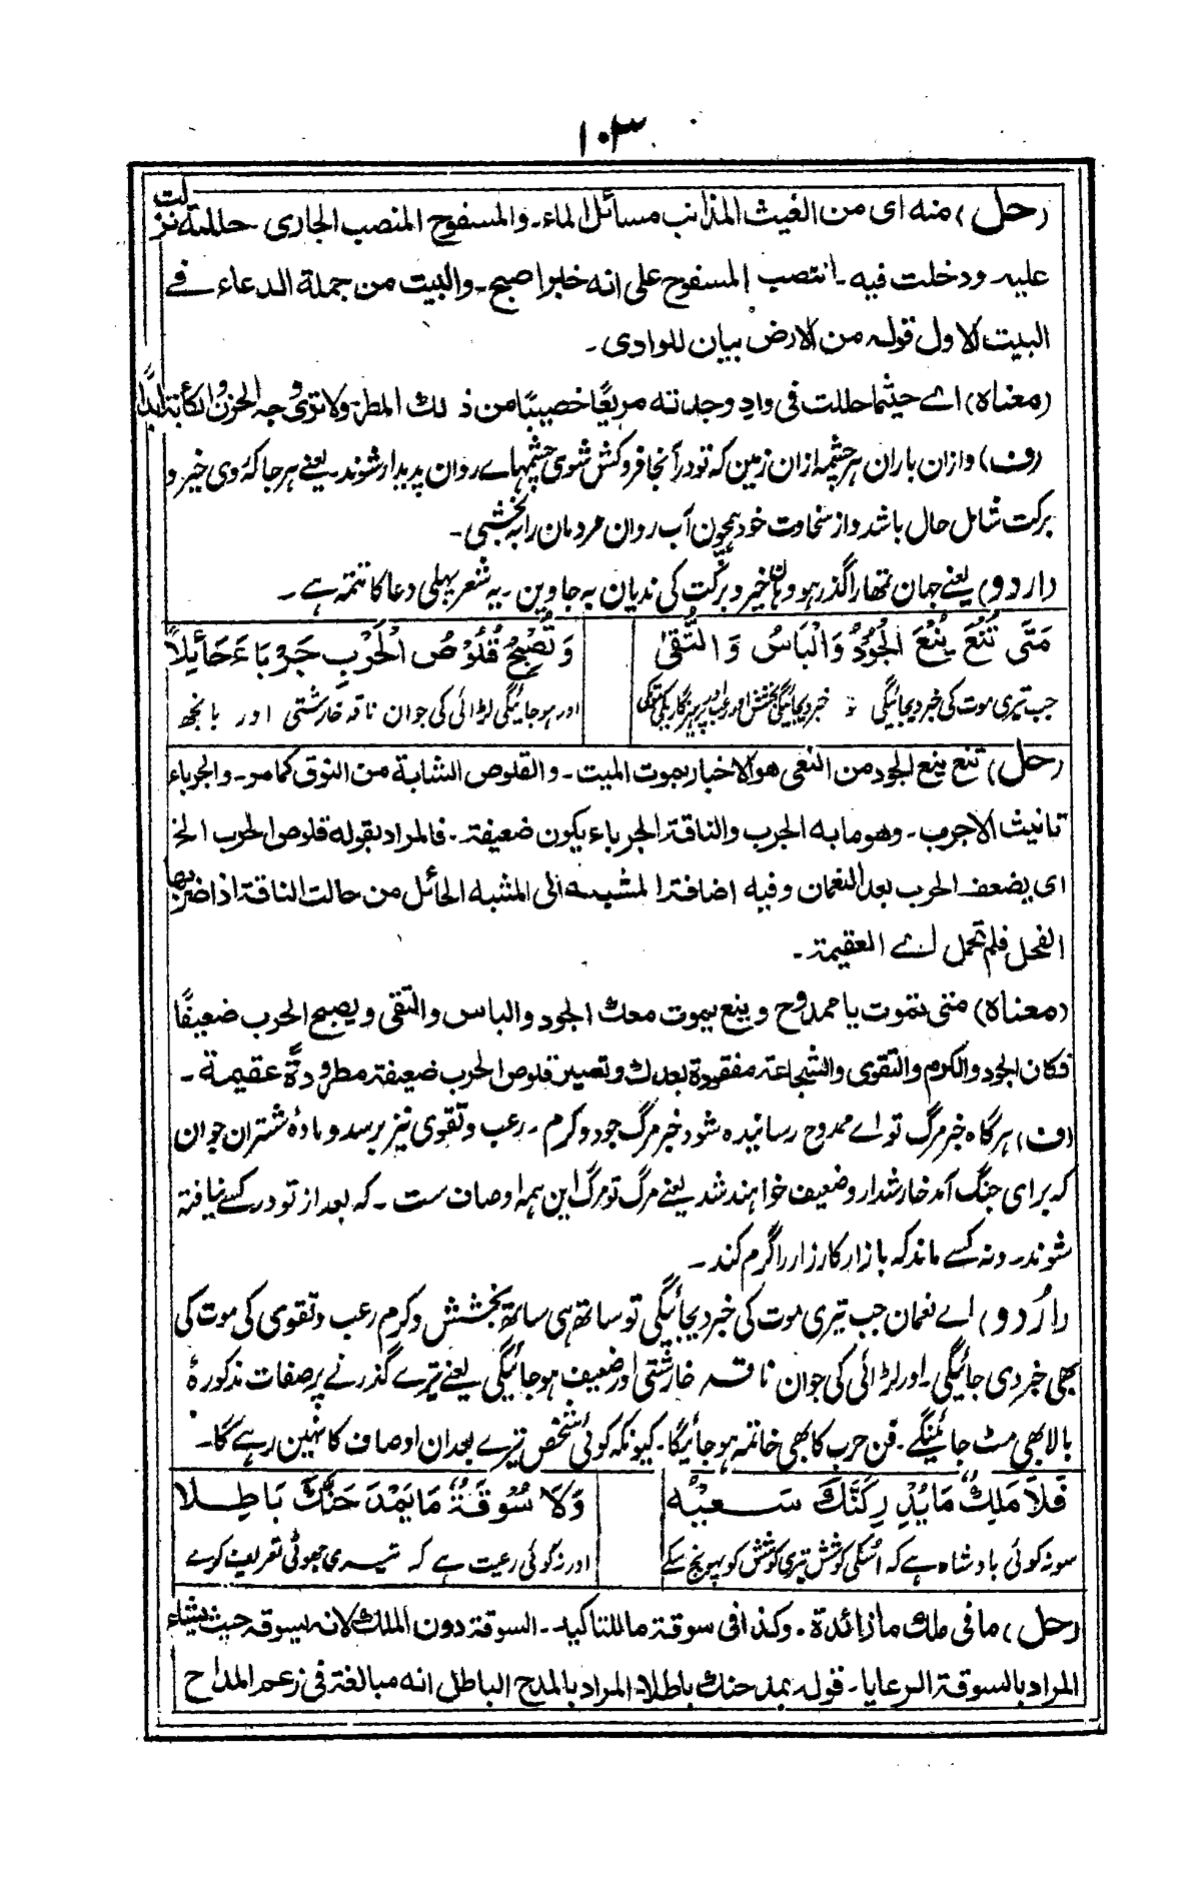 ۱۰۳
(حل) منه ای من الغیث المذانب مسائل الماء۔ والمسفوح المنصب الجاری حللته نزلت
علیہ ودخلت فیه۔ انتصب المسفوح علی انه خبر اصبح۔ والبیت من جملة الدعاء فے
البیت الاول قوله من الارض بیان للوادی۔
(معناه) اے حیثما حللت فی وادٍ وجدته مریعًا خصیبًا من ذلك المطر ولا تری وجه الحزن والکأبة ابدًا
(ف) و ازان باران ہر چشمہ ازان زمین کہ تو در آنجا فروکش شوی چشمہاے روان پدیدار شوند۔ یعنے ہر جا کہ وی خیر و
برکت شامل حال باشد و از سخاوت خود ہمچون آب روان مردمان را بہ بخشی۔
(اردو) یعنے جہان تمھارا گذر ہو وہان خیر و برکت کی ندیان بہ جاوین۔ یہ شعر پہلی دعا کا تتمہ ہے۔
مَتَی تُنْعَ یُنْعَ الْجُوْدُ وَالْبَاسُ وَ التُّقیٰ وَتُصْبِحُ قُلُوْصُ الْحَرْبِ جَرْبَاءَ حَائِلاً
جب تیری موت کی خبر دیجائیگی ؛ خبر دیجائیگی بخشش اور رعب اور پرہیزگاری کی اور ہو جائیگی لڑائی کی جوان ناقہ خارشتی اور بانجھ
(حل) تنع ینع الجود من النعی هو الاخبار بموت المیت۔ والقلوص الشابة من النوق کما مر۔ والجرباء
تانیث الاجرب۔ وهو ما به الجرب والناقة الجرباء یکون ضعیفة۔ فالمراد بقوله قلوص الحرب الخ
ای یضعف الحرب بعد النعمان وفیه اضافة المشبہ الی المشبه الحائل من حالت الناقة اذا ضربها
الفحل فلم تحمل اے العقیمة۔
(معناه) متی تموت یا ممدوح وینع بموت معك الجود والباس والتقی ویصبح الحرب ضعیفًا
فکان الجود والکرم والتقوی والشجاعة مفقودة بعدك وتصیر قلوص الحرب ضعیفة مطرودةً عقیمة۔
(ف) ہر گاہ خبر مرگ تو اے ممدوح رسانیدہ شود خبر مرگ جود و کرم۔ رعب و تقوی نیز برسد و مادۂ شتران جوان
کہ برای جنگ اند خارشدار و ضعیف خواہند شد یعنے مرگ تو مرگ این ہمہ اوصاف ست۔ کہ بعد از تو در کسے نیافتہ
شوند۔ ونہ کسے ماند کہ بازار کارزار را گرم کند۔
(اُردو) اے نعمان جب تیری موت کی خبر دیجائیگی تو ساتھ ہی ساتھ بخشش و کرم رعب و تقوی کی موت کی
بھی خبر دی جائیگی۔ اور لڑائی کی جوان ناقہ خارشتی اور ضعیف ہو جائیگی یعنے تیرے گذرنے پر صفات مذکورۂ
بالا بھی مٹ جائینگے۔ فن حرب کا بھی خاتمہ ہو جائیگا۔ کیونکہ کوئی شخص تیرے بعد ان اوصاف کا نہین رہے گا۔
فَلاَ مَلِكٌ مَا یُدْرِکَنَّكَ سَعْیُهٗ وَلاَ سُوْقَةٌ مَا یَمْدَحَنَّكَ بَاطِلاَ
سو نہ کوئی بادشاہ ہے کہ اُسکی کوشش تیری کوشش کو پہونچ سکے اور نہ کوئی رعیت ہے کہ تیری جھوٹی تعریف کرے
(حل) ما فی ملك ما زائدة۔ وکذا فی سوقة ما للتاکید۔ السوقة دون الملك لانه یسوقه حیث یشاء
المراد بالسوقة الرعایا۔ قوله یمدحنك باطلا المراد بالمدح الباطل انه مبالغة فی زعم المداح